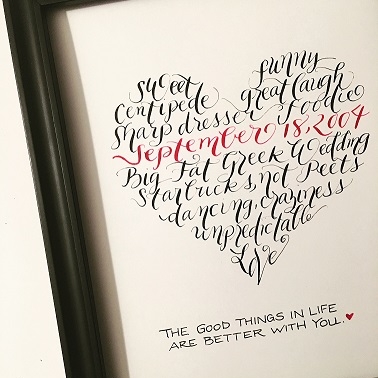 sweet funny
centipede great laugh
sharp dresser foodie
September 18, 2004
Big Fat Greek Wedding
Starbucks, not Peets
dancing, craziness
unpredictable
Love
THE GOOD THINGS IN LIFE
ARE BETTER WITH YOU.